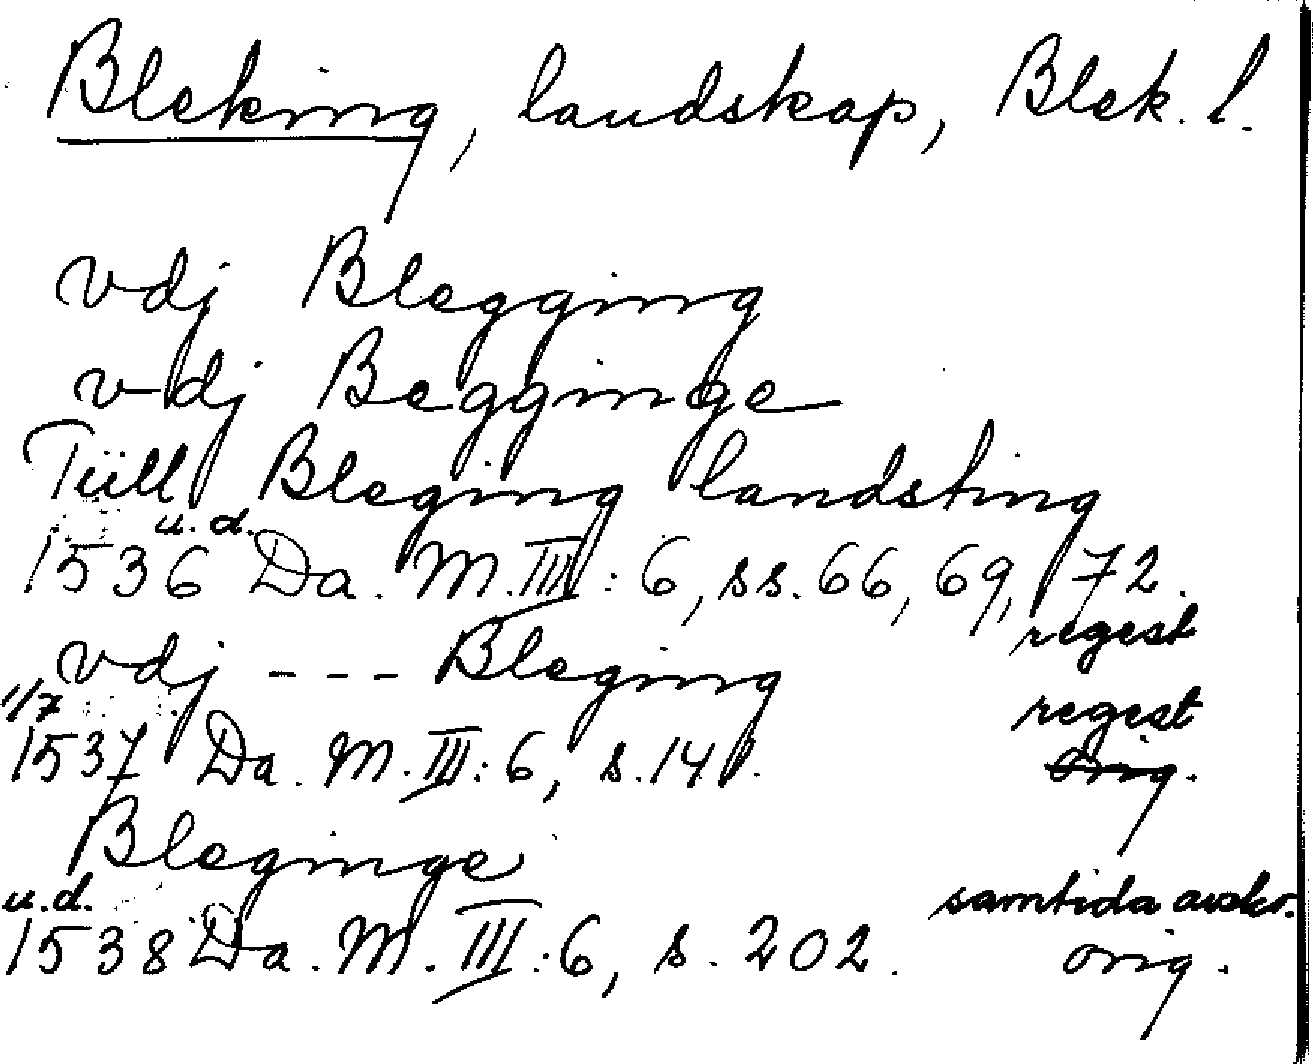 Bleking, landskap, Blek. l.
vdj Blegging
vdj Begginge
Tüll Bleging landsting
u. d.
1536 Da. M. III: 6, ss. 66, 69, 72.
regest
vdj --- Bleging
1/7 regest
1537 Da. M. III: 6, s. 141. orig.
Bleginge
u. d. samtida avskr.
1538 Da. M. III: 6, s. 202. orig.